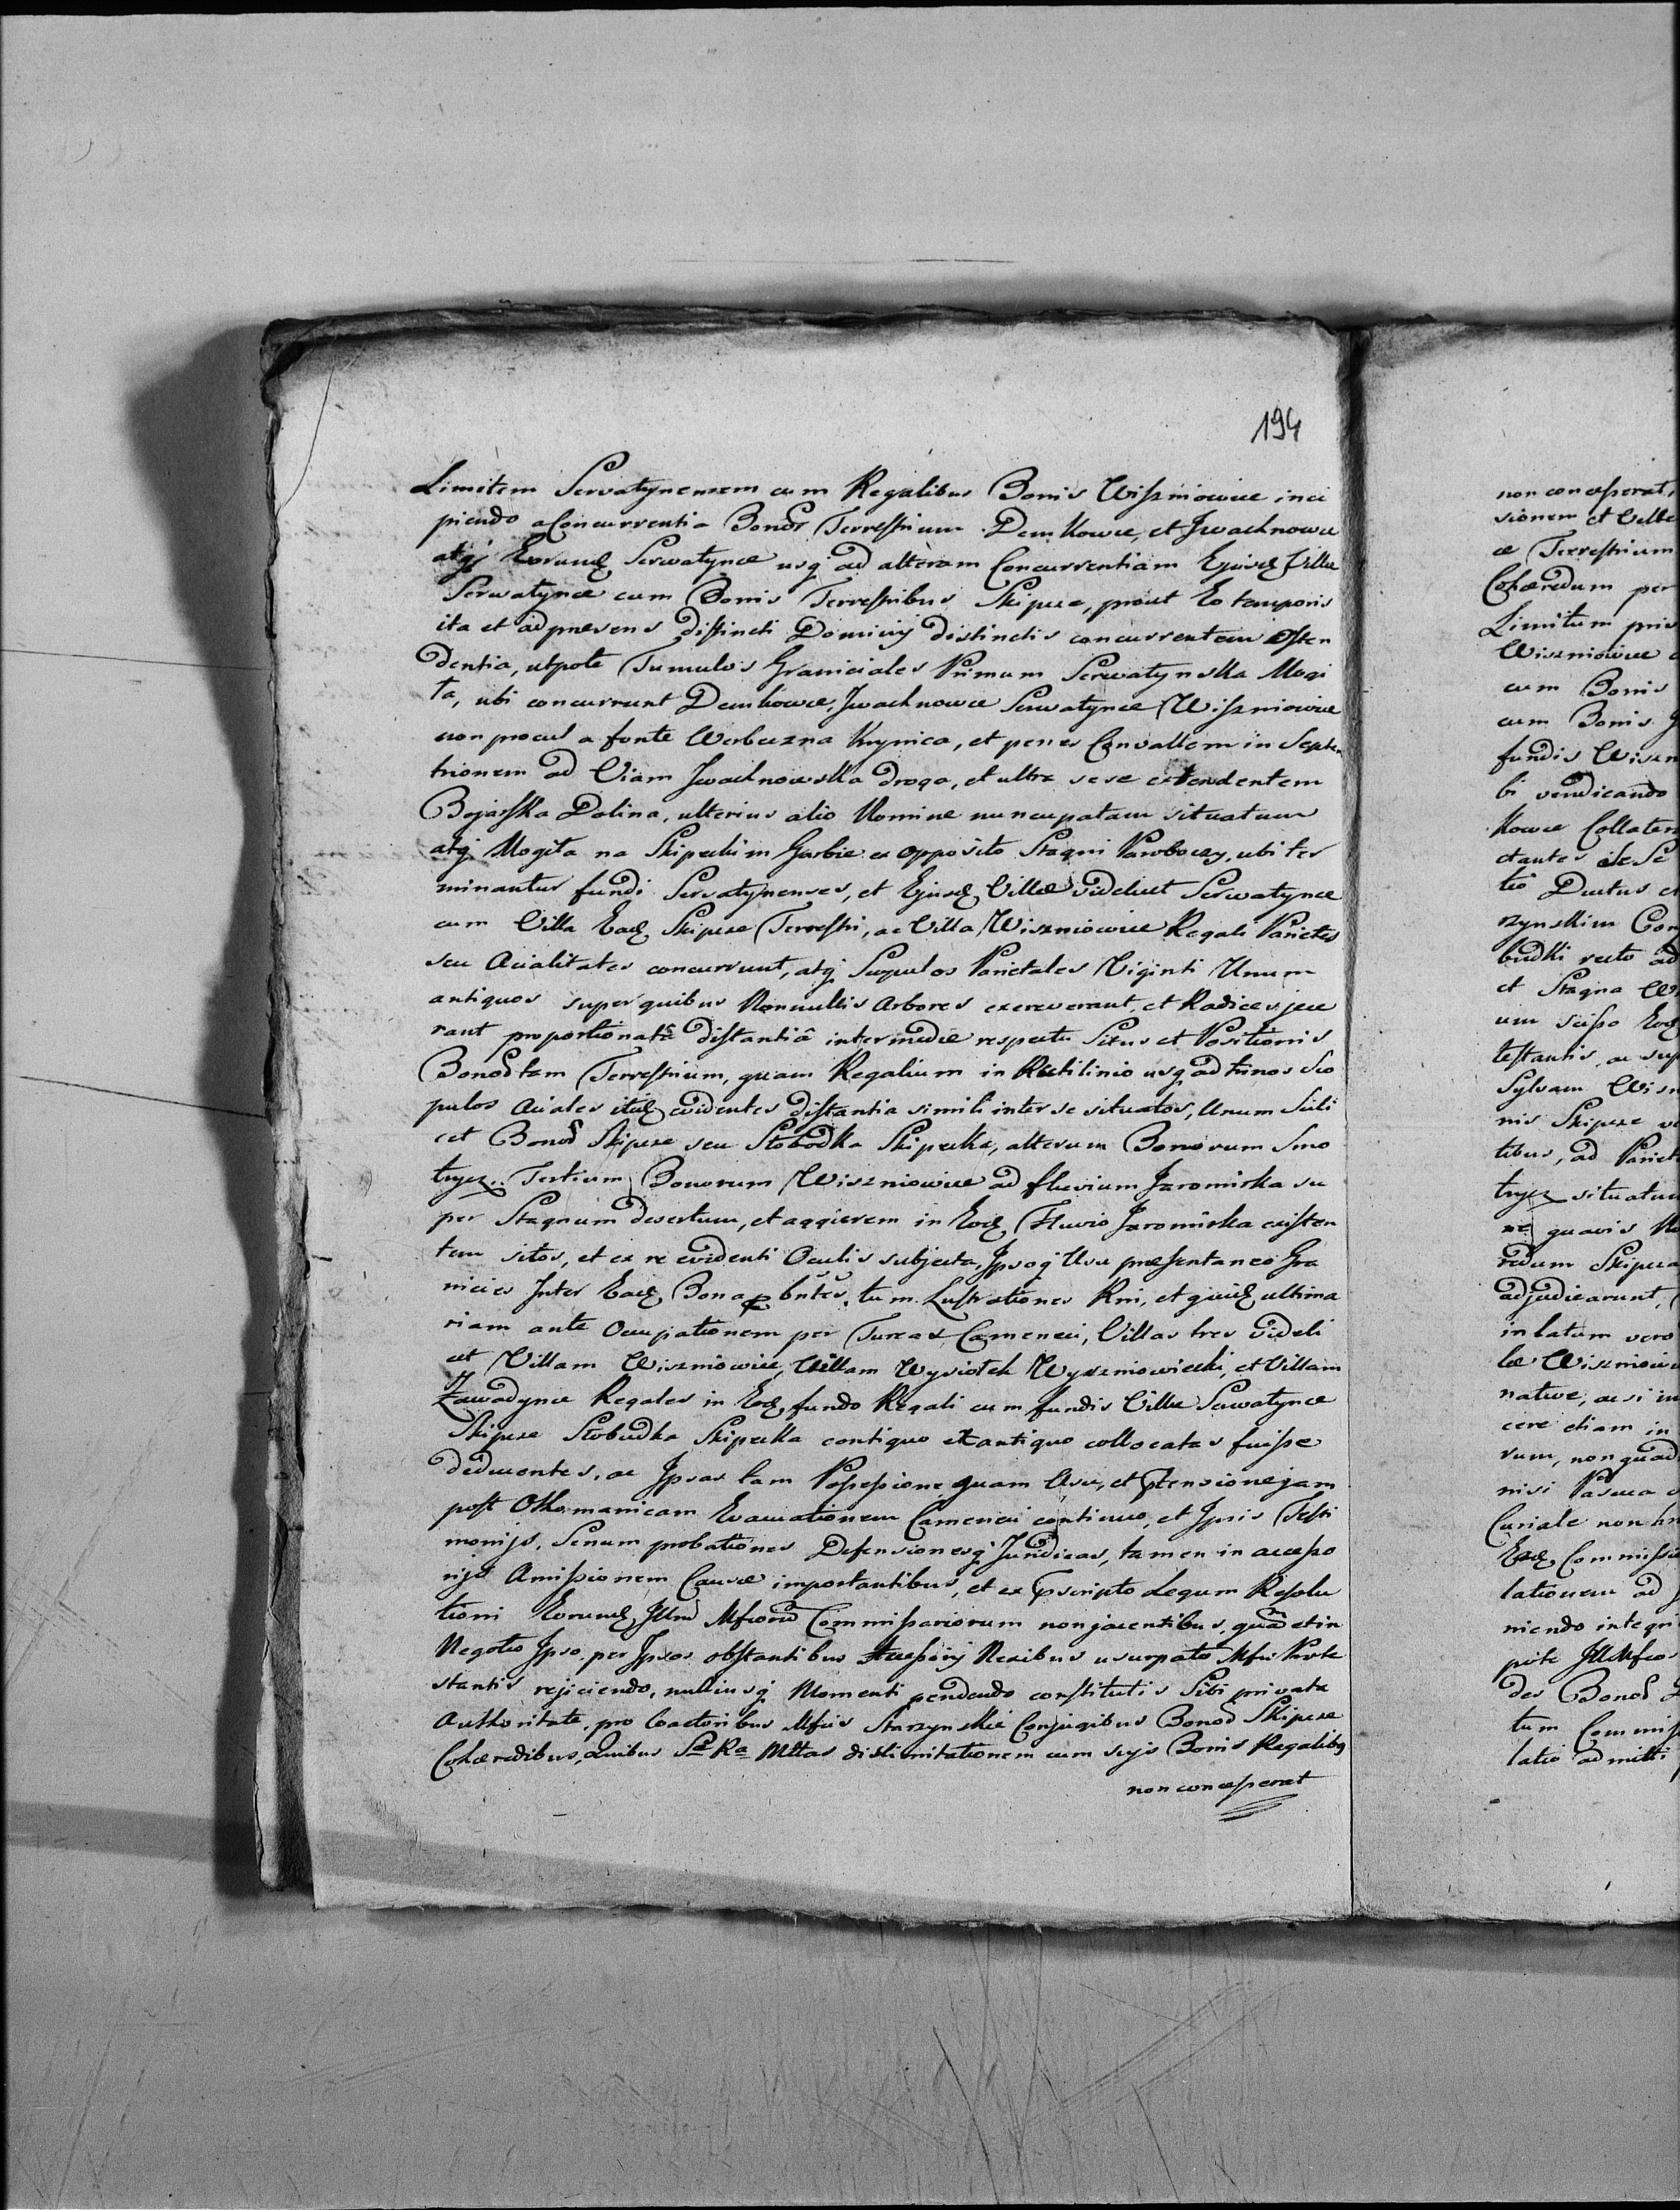 194
Limitem Servatynensem cum Regalibus Bonis Wiszniowice inci
piendo a Concurrentia Bonor Terrestrium Demkowce, et Jwachnowce
atqj Eorund Serwatynce usq ad alteram Concurrentiam Ejusd Villae
Serwatynce cum Bonis Terrestribus Skipcze, prout Eo temporis
ita et ad praesens distincti Dominij distinctis concurrentem osten
dentia, utpote Tumulos Graniciales Primum Serwatynska Mogi
ła, ubi concurrunt Demkowce, Jwachnowce Serwatynce Wiszniowice
non procul a fonte Werbeczna Krynica, et penes Convallem in Septen
trionem ad Viam Jwachnowska droga, et ultra sese extendentem
Bojarska Dolina, ulterius alio Nomine nuncupatam situatum
atq Mogiła na Skipeckim Garbie ex opposito Stagni Paroboczy, ubi ter
minantur fundi Servatynenses, et Ejusd Villae videlicet Serwatynce
cum Villa Ead Skipcze Terrestri, ac Villa Wiszniowice Regali Parietes
seu Acialitates concurrunt, atq Scopulos Parietales Viginti Unum
antiquos super quibus Nonnullis Arbores excreverant, et Radices jece
rant proportionatâ distantiâ intermedie respectu Situs et Positionis
Bonor tam Terrestrium, quam Regalium in Rectilinio usq ad trinos Sco
pulos Aciales itid evidentes distantia simili inter se situatos, Unum Scili
cet Bonor Skipcze seu Słobodka Skipecka, alterum Bonorum Smo
trycz. Tertium Bonorum Wiszniowice ad fluvium Jaromirka su
per Stagnum desertum, et aggerem in Eod Fluvio Jaromirka existen
tem sitos, et ex re evidenti Oculis subjecta, Jpsoq Usu praesentaneo Gra
nicies Inter Ead Bona pbntes, tum Lustrationes Rni, et quid ultima
riam ante Occupationem per Turcas Camenecij, Villas tres Videli
cet Villam Wiszniowice, Villam Wysiołek Wyszniowiecki, et Villam
Zawadynce Regales in Eod fundo Regali cum fundis Villae Serwatynce
Skipcze Słobudka Skipecka contiguo et antiquo collocatas fuisse
deducentes, ac Jpsas tam Possessione quam Usu, et ptensione jam
post Othomanicam Evacuationem Cameneci continuo, et Jpsis Testi
monijs, Senum probationes Defensionesq Juridicas, tamen in accesso
rijs Amissionem Causae importantibus, et ex pscripto Legum Resolu
tioni Eorund Jllm Mficorum Commissariorum non jacentibus, quam et in
Negotio Jpso per Jpsos obstantibus Accessorij Nexibus usurpato Mfici Prote
stantis rejiciendo, nulliusq Momenti pendendo constitutis Sibi privata
Authoritate pro Coactoribus Mficis Starzynskie Conjugibus Bonor Skipcze
Cohaeredibus, Quibus Sa Ra Mttas dislimitationem cum suis Bonis Regalibq
non concesserat
non concesserat,
sionem et Ville
ae Terrestrium
Cohaeredum per
Limitum pris
Wiszniowice
cum Bonis
cum Bonis
fundis Wiszn
bi vendicando
kowce Collater
ctantes de Se
tio Ductus et
rzynskim Con
budki recto ad
et Stagna W
um scisso Eod
testantis, ac sup
Sylvam Wisn
nis Skipcze
tibus, ad Pariet
trycz situatum
quavis
redum Skipcza
adjudicarunt,
in latum vero
lae Wiszniowi
native, ac si in
cere etiam in
rum, non quod
nisi Pascua
Curiale non
Ead Commissio
lationem ad
niendo integri
pite JllMfcos
des Bonor
tum Commis
latio admitti